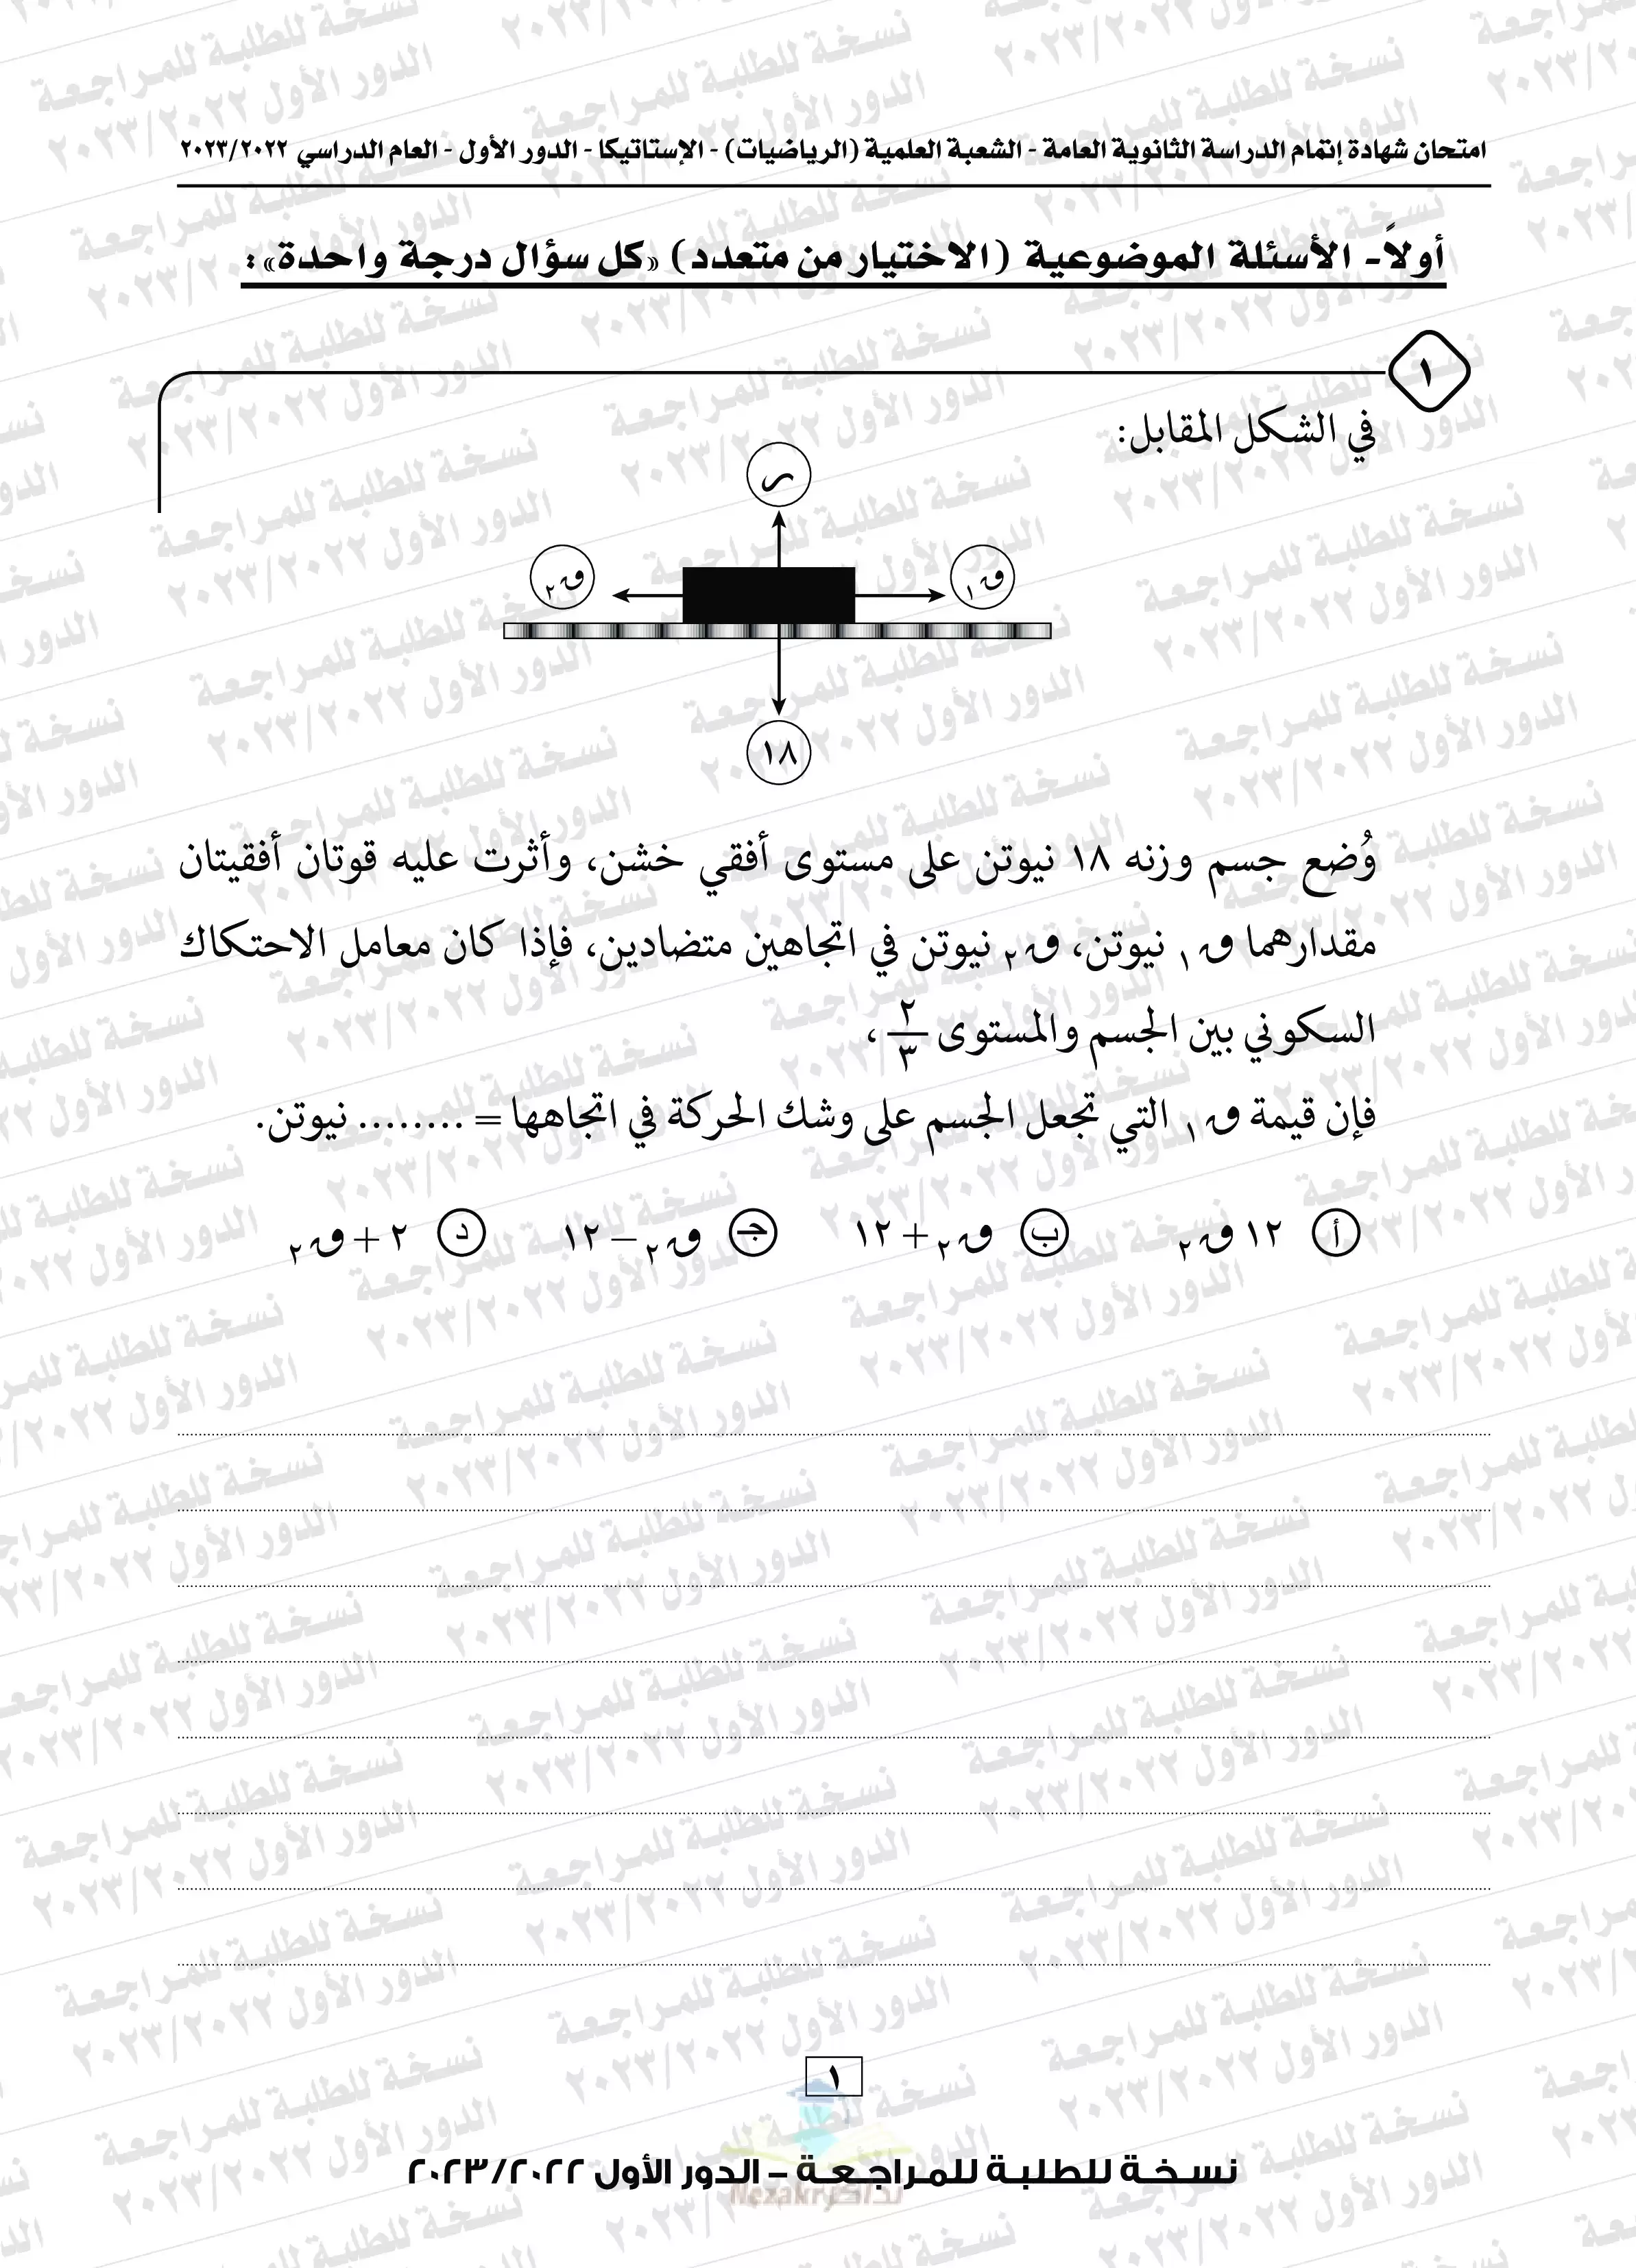 امتحان شهادة إتمام الدراسة الثانوية العامة - الشعبة العلمية (الرياضيات) - الإستاتيكا - الدور الأول - العام الدراسي ٢٠٢٣/٢٠٢٢
أولاً- الأسئلة الموضوعية (الاختيار من متعدد) «كل سؤال درجة واحدة»:
١
في الشكل المقابل:
ر
ق١
ق٢
١٨
وُضع جسم وزنه ١٨ نيوتن على مستوى أفقي خشن، وأثرت عليه قوتان أفقيتان
مقدارهما ق١ نيوتن، ق٢ نيوتن في اتجاهين متضادين، فإذا كان معامل الاحتكاك
السكوني بين الجسم والمستوى ٢/٣ ،
فإن قيمة ق١ التي تجعل الجسم على وشك الحركة في اتجاهها = ........ نيوتن.
أ ١٢ ق٢ ب ق٢ + ١٢ جـ ق٢ – ١٢ د ٢ + ق٢
١
نسخة للطلبة للمراجعة – الدور الأول ٢٠٢٣/٢٠٢٢
نسخة للطلبة للمراجعة
الدور الأول ٢٠٢٣/٢٠٢٢